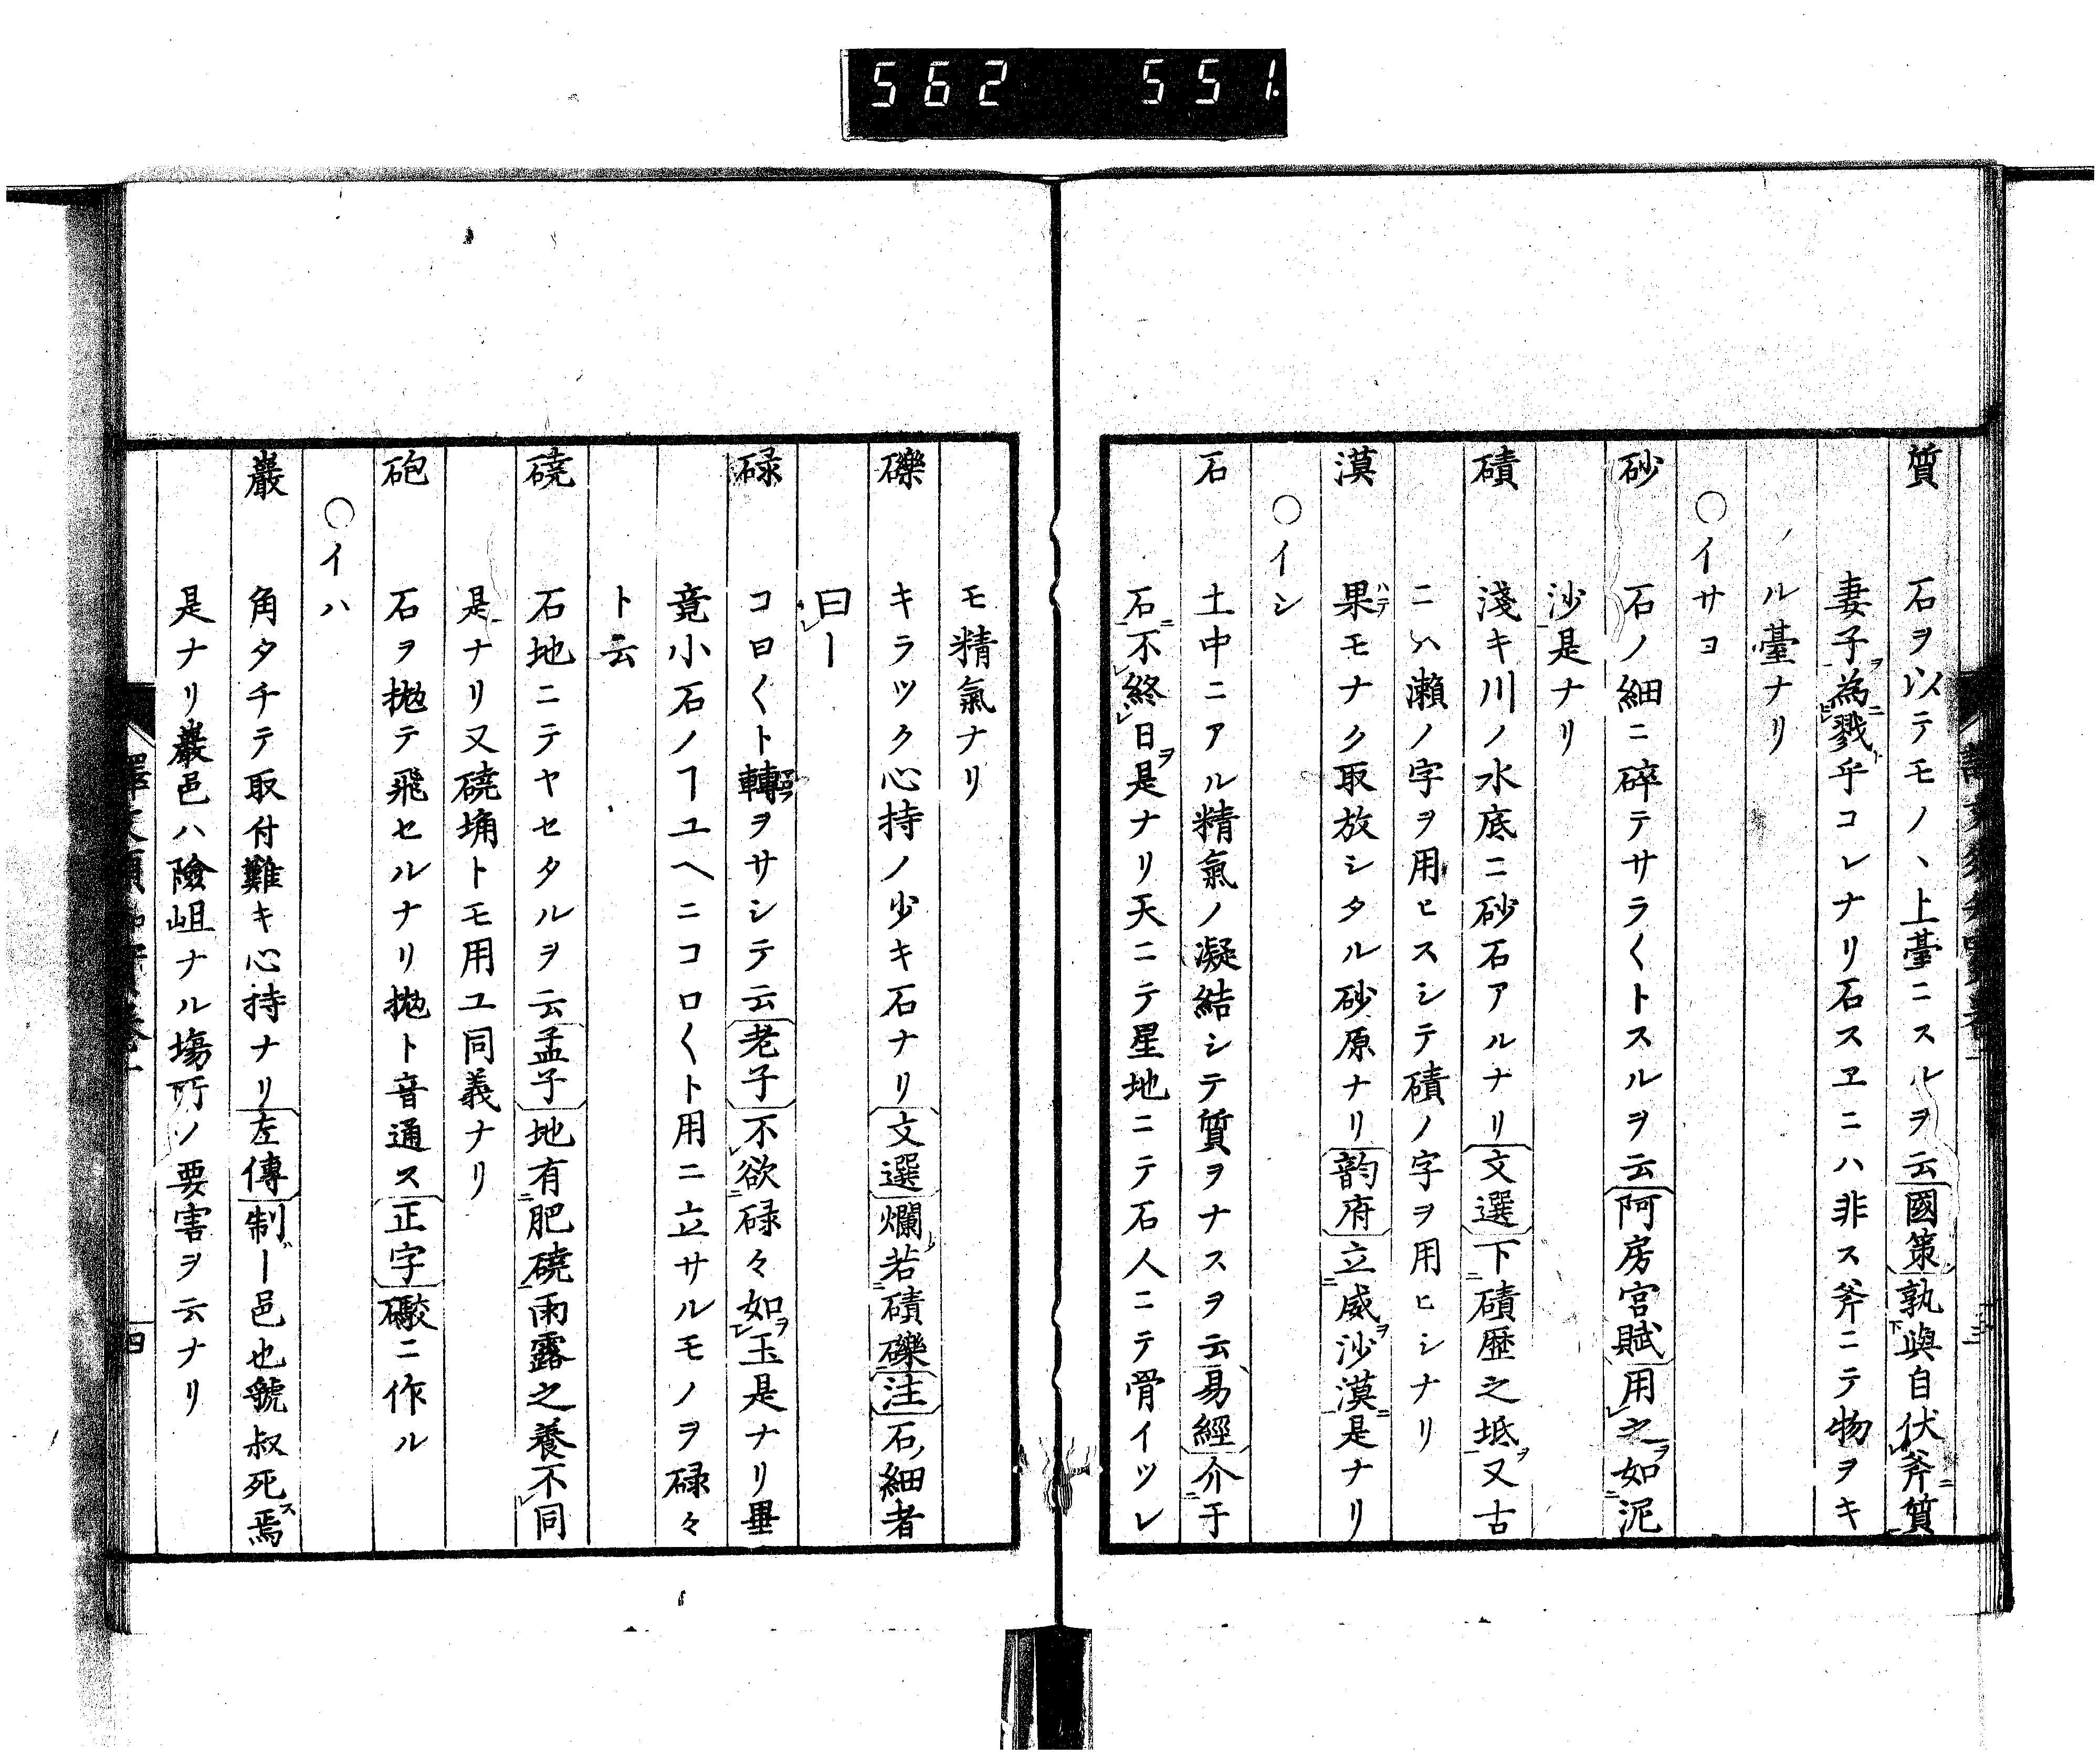 562 551
質 石ヲ以テモノヽ上臺ニスルヲ云國策孰與自伏斧質
妻子為戮乎コレナリ石スヱニハ非ス斧ニテ物ヲキ
ル臺ナリ
○イサコ
砂 石ノ細ニ碎テサラ〱トスルヲ云阿房宮賦用之如泥
沙是ナリ
磧 淺キ川ノ水底ニ砂石アルナリ文選下磧歴之坻又古
ニハ瀬ノ字ヲ用ヒスシテ磧ノ字ヲ用ヒシナリ
漠 果モナク取放シタル砂原ナリ韵府立威沙漠是ナリ
○イシ
石 土中ニアル精氣ノ凝結シテ質ヲナスヲ云易經介于
石不終日是ナリ天ニテ星地ニテ石人ニテ骨イツレ
モ精氣ナリ
礫 キラツク心持ノ少キ石ナリ文選爛若磧礫注石細者
曰ー
碌 コロ〱ト轉ヲサシテ云老子不欲碌々如玉是ナリ畢
竟小石ノヿユヘニコロ〱ト用ニ立サルモノヲ碌々
ト云
磽 石地ニテヤセタルヲ云孟子地有肥磽雨露之養不同
是ナリ又磽埆トモ用ユ同義ナリ
砲 石ヲ拋テ飛セルナリ拋ト音通ス正字礮ニ作ル
○イハ
巖 角タチテ取付難キ心持ナリ左傳制ー邑也虢叔死焉
是ナリ巖邑ハ險岨ナル塲所ノ要害ヲ云ナリ
四